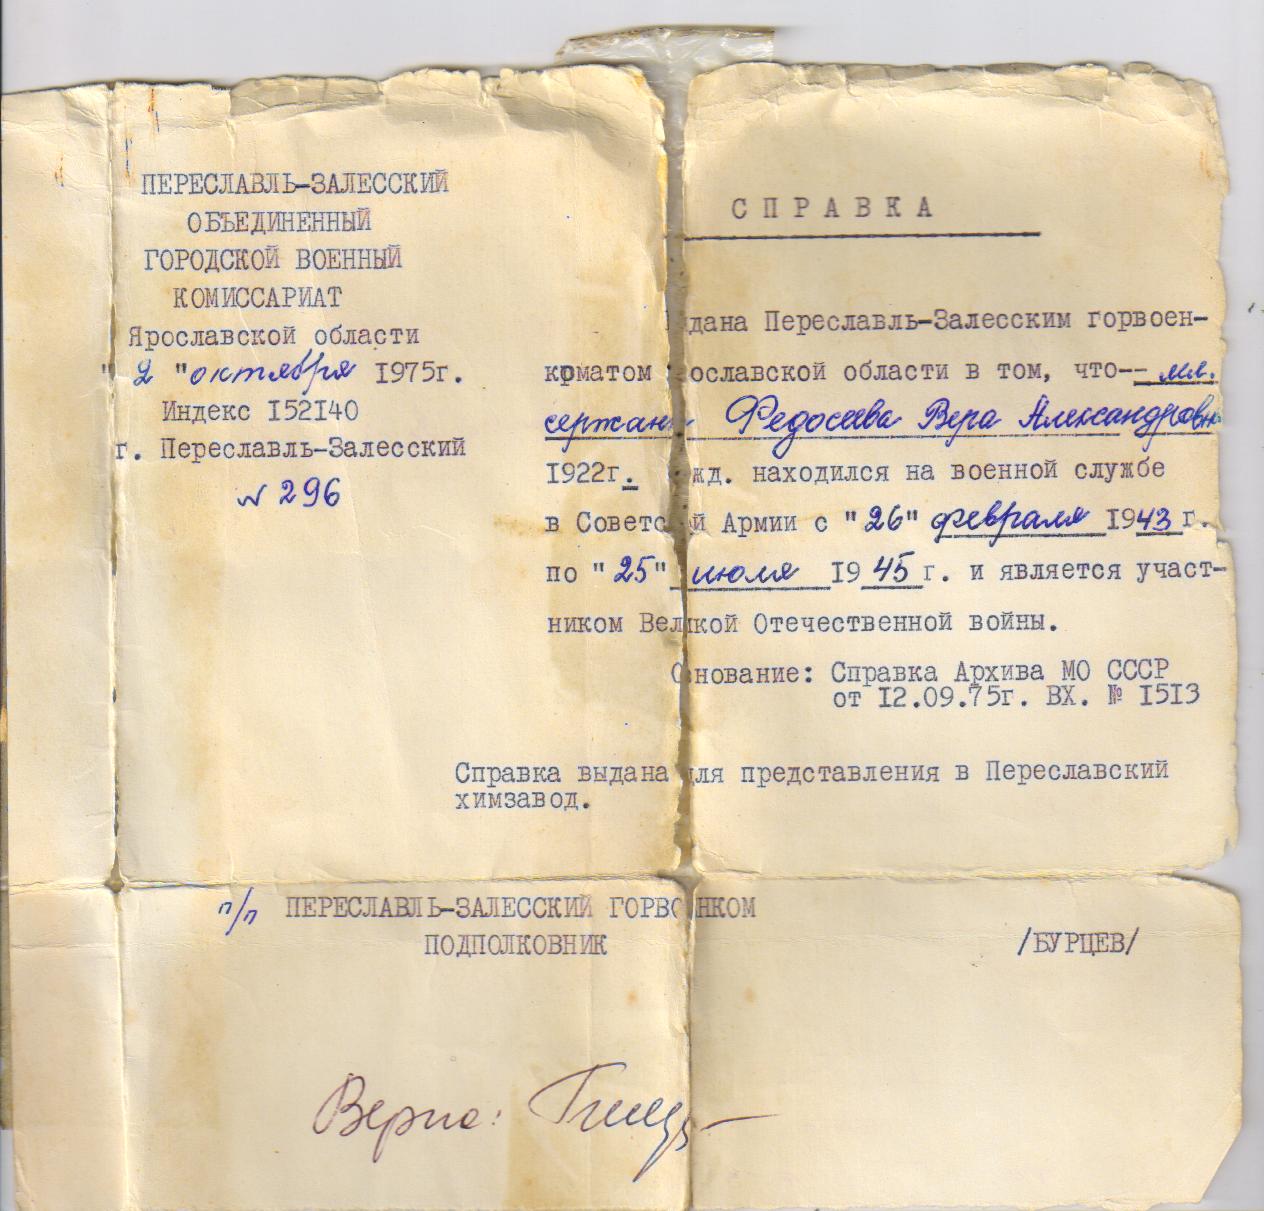 ПЕРЕСЛАВЛЬ-ЗАЛЕССКИЙ
ОБЪЕДИНЕННЫЙ
ГОРОДСКОЙ ВОЕННЫЙ
КОМИССАРИАТ
Ярославской области
"2 "октября 1975г.
Индекс 152140
г. Переславль-Залесский
№ 296
СПРАВКА
дана Переславль-Залесским горвоен-
коматом ославской области в том, что-- мл.
сержант Федосеева Вера Александровна
1922г. жд. находился на военной службе
в Советской Армии с "26" февраля 1943 г.
по "25" июля 1945 г. и является участ-
ником Великой Отечественной войны.
Основание: Справка Архива МО СССР
от 12.09.75г. ВХ. № 1513
Справка выдана для представления в Переславский
химзавод.
п/п ПЕРЕСЛАВЛЬ-ЗАЛЕССКИЙ ГОРВОЕНКОМ
ПОДПОЛКОВНИК /БУРЦЕВ/
Верно: